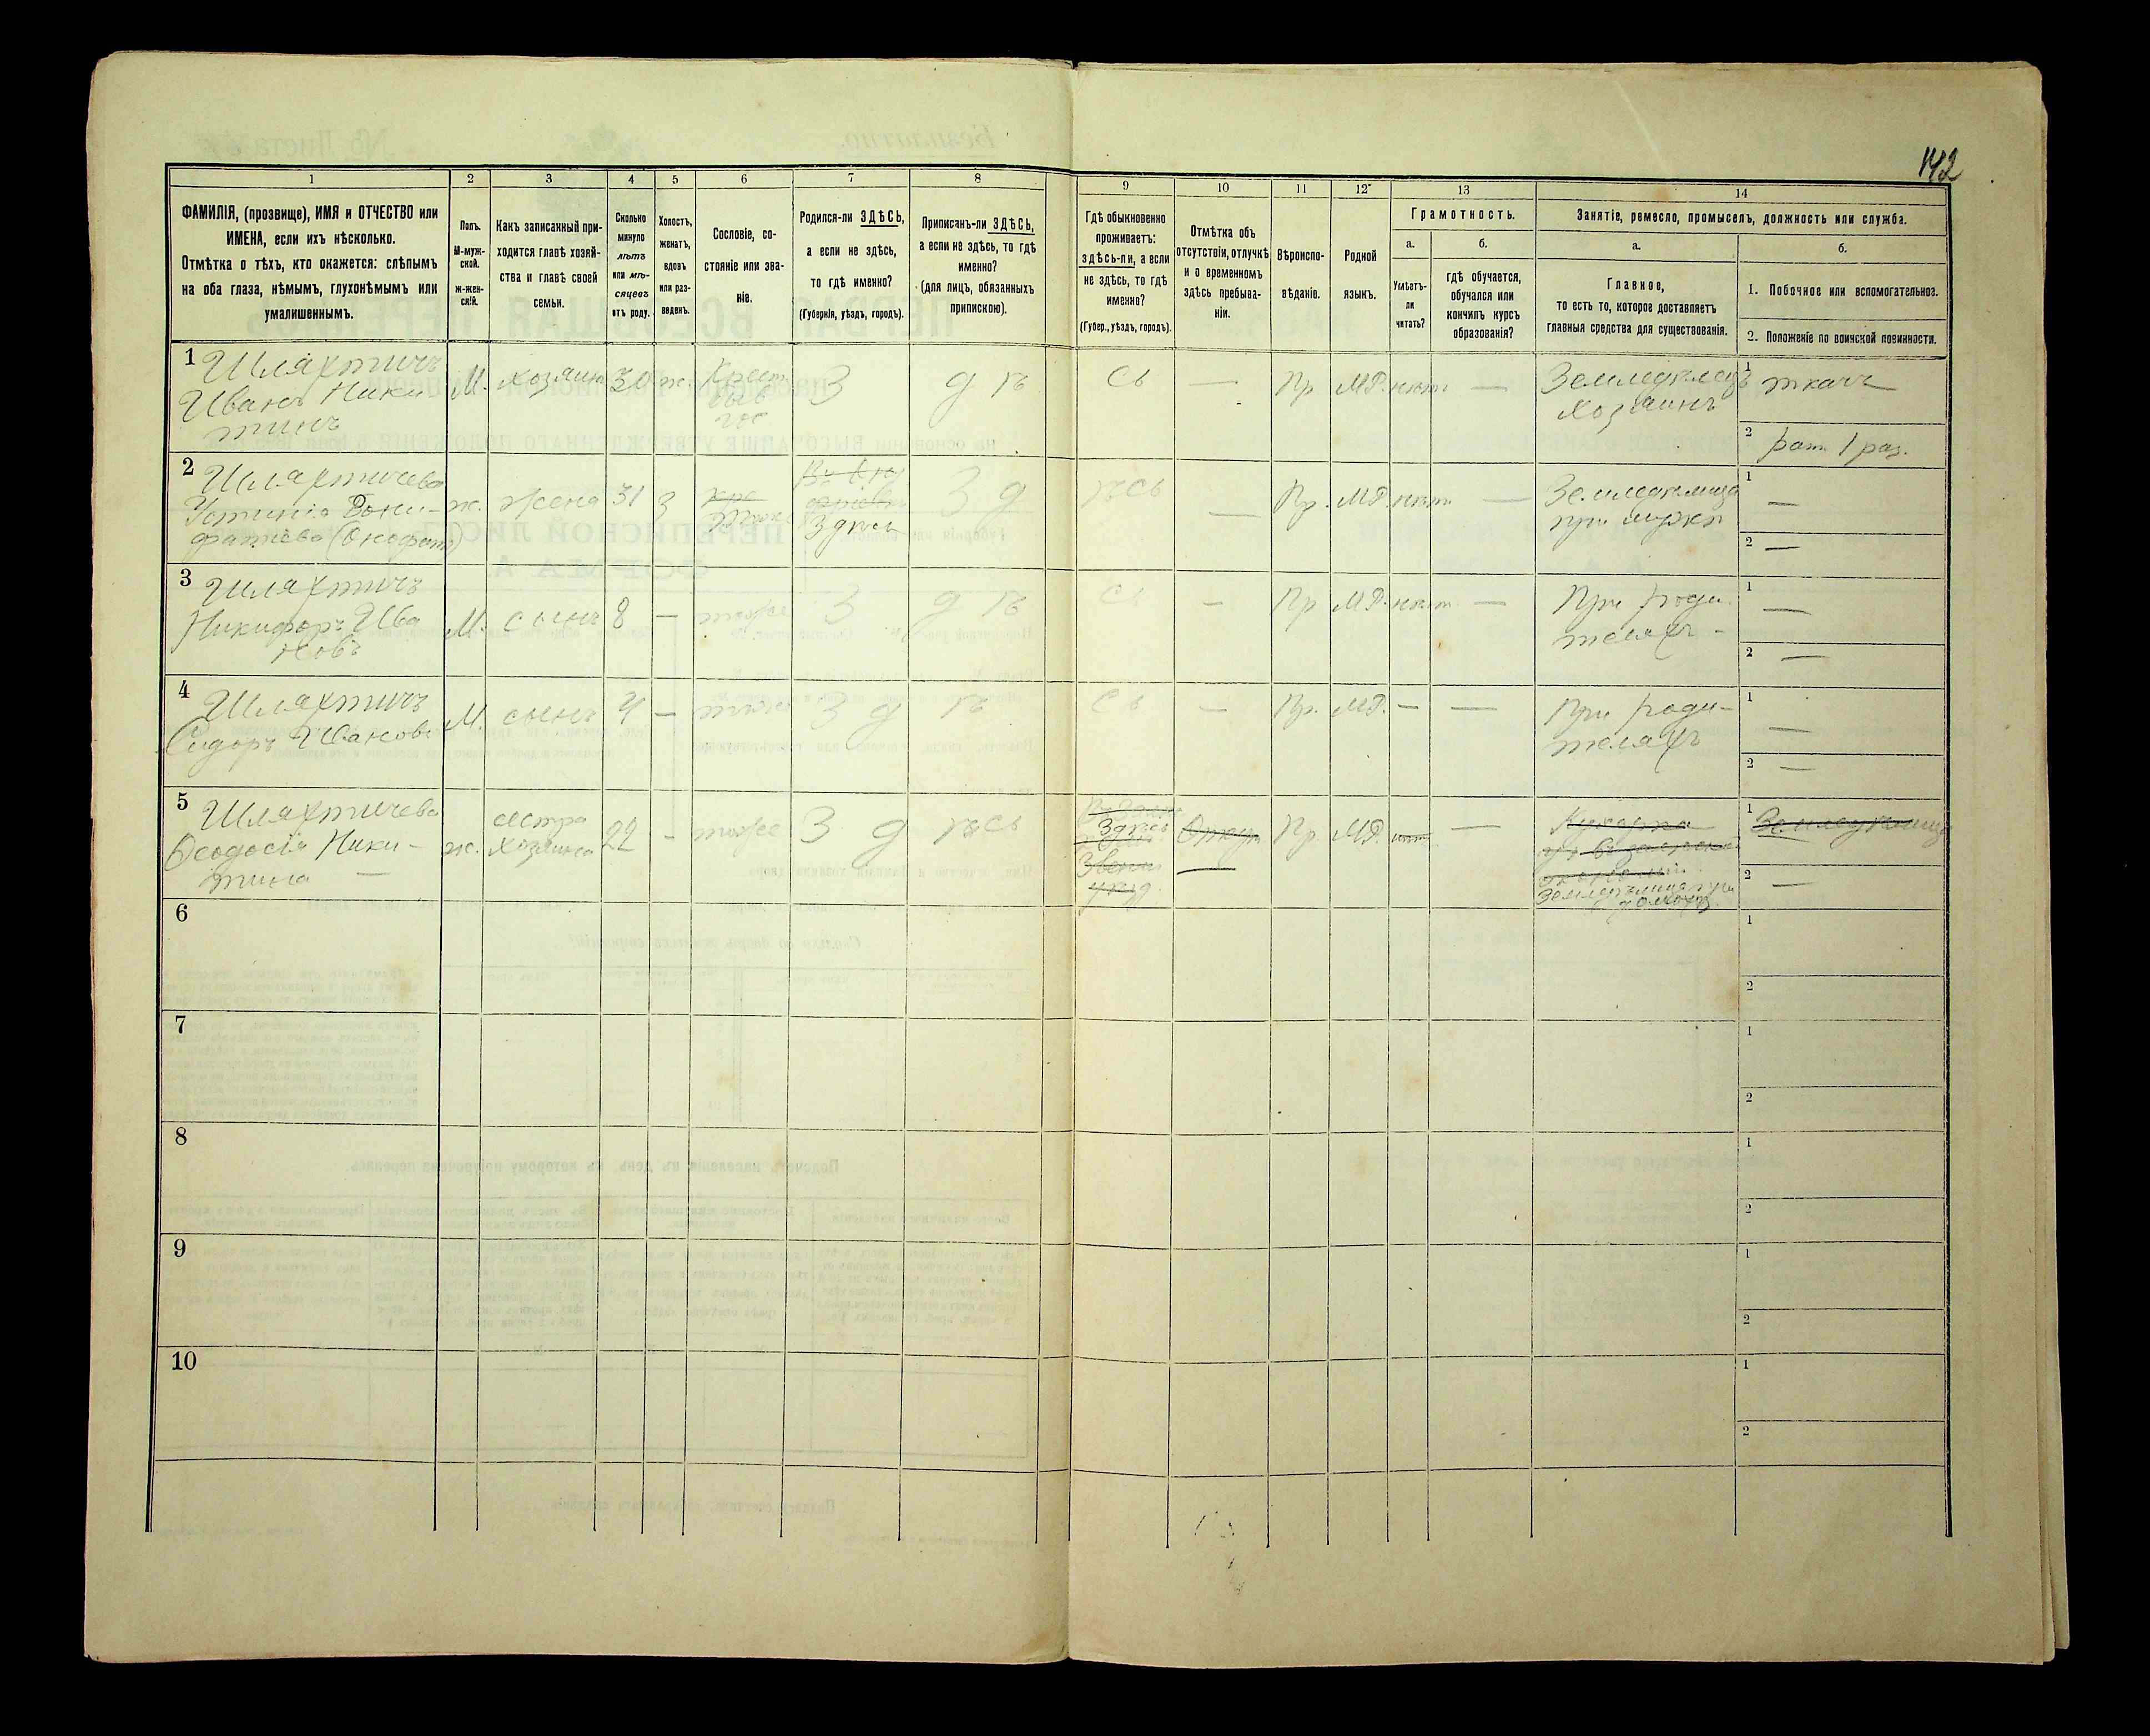 142
1
2
3
4
5
6
7
8
9
10
11
12
13
14
ФАМИЛІЯ, (прозвище), ИМЯ и ОТЧЕСТВО или
ИМЕНА, если ихъ нѣсколько.
Отмѣтка о тѣхъ, кто окажется: слѣпымъ
на оба глаза, нѣмымъ, глухонѣмымъ или
умалишеннымъ.
Полъ.
М-муж-
ской.
ж-жен-
скій.
Какъ записанный при-
ходится главѣ хозяй-
ства и главѣ своей
семьи.
Сколько
минуло
лѣтъ
или мѣ-
сяцевъ
отъ роду.
Холостъ,
женатъ,
вдовъ
или раз-
веденъ.
Сословіе, со-
стояніе или зва-
ніе.
Родился-ли ЗДѢСЬ,
а если не здѣсь,
то гдѣ именно?
(Губернія, уѣздъ, городъ).
Приписанъ-ли ЗДѢСЬ,
а если не здѣсь, то гдѣ
именно?
(для лицъ, обязанныхъ
припискою).
Гдѣ обыкновенно
проживаетъ:
здѣсь-ли, а если
не здѣсь, то гдѣ
именно?
(Губер., уѣздъ, городъ).
Отмѣтка объ
отсутствіи, отлучкѣ
и о временномъ
здѣсь пребыва-
ніи.
Вѣроиспо-
вѣданіе.
Родной
языкъ.
Грамотность.
а.
Умѣетъ-
ли
читать?
б.
гдѣ обучается,
обучался или
кончилъ курсъ
образованія?
Занятіе, ремесло, промыселъ, должность или служба.
а.
Главное,
то есть то, которое доставляетъ
главныя средства для существованія.
б.
1. Побочное или вспомогательное.
2. Положеніе по воинской повинности.
1 Шляхтичъ
Иванъ Ники
тинъ
М. хозяинъ 30 ж. Крест.
быв
гос
З д ѣ сь — Пр МР. нѣт. —
Земледѣлецъ
хозяинъ
1 ткачъ
2 рат. 1 раз.
2 Шляхтичева
Устинія
(Онофрит)
ж. жена 31 З
тоже
Здѣсь
З д ѣсь — Пр. МР. нѣт. —
Земледѣлица
при мужѣ
1 —
2 —
3 Шляхтичъ
Никифоръ Ива
новъ
М. сынъ 8 — тоже З д ѣ сь — Пр МР. нѣт. —
При роди
теляхъ -
1 —
2 —
4 Шляхтичъ
Сидоръ Ивановъ
М. сынъ 4 — тоже З д ѣ сь — Пр. МР. — —
При роди-
теляхъ
1 —
2 —
5 Шляхтичева
Ѳеодосія Ники-
тина —
ж. сестра
хозяина
22 - тоже З д ѣсь
Здѣсь
Звени
уѣзд.
— Пр МР. нѣт. —
Кухарка
Земледѣлица при
домохоз.
1 Земледѣлица
2 —
6
1
2
7
1
2
8
1
2
9
1
2
10
1
2